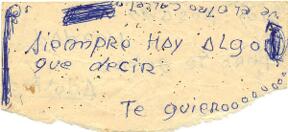 SIEMPRE HAY ALGO
QUE DECIR
TE QUIEROOOOOOO